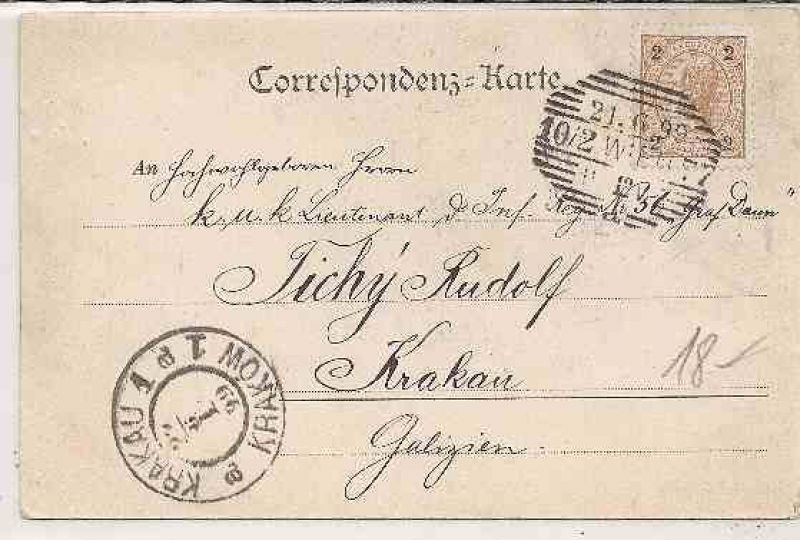 Correspondenz=Karte
2 2
2 2
21. 99
10/2 WIEN
An Hochwohlgeboren Herrn
k. u. k Lieutenant d. Inf. Reg. N. 56 „Graf Daun"
Tichý Rudolf
Krakau
Galizien.
18-
KRAKAU 1 P 1 KRAKOW
99